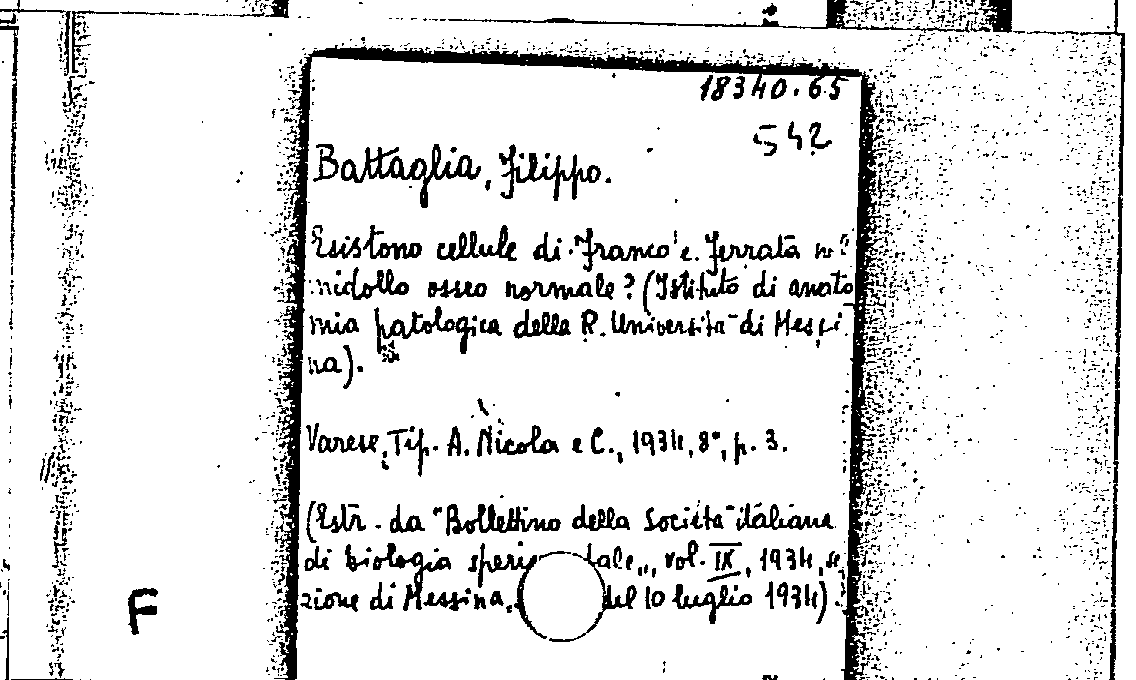 18340.65
542
Battaglia, Filippo.
Esistono cellule di Franco e Ferrata nel
midollo osseo normale? (Istituto di anato
mia patologica della R. Università di Messi
na).
Varese, Tip. A. Nicola e C., 1934, 8°, p. 3.
(Estr. da "Bollettino della Società italiana
di biologia sperimentale", vol. IX, 1934, se
zione di Messina, del 10 luglio 1934).
F